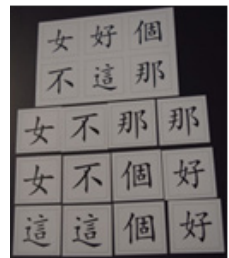 女好個
不這那
女不那那
女不個好
這這個好